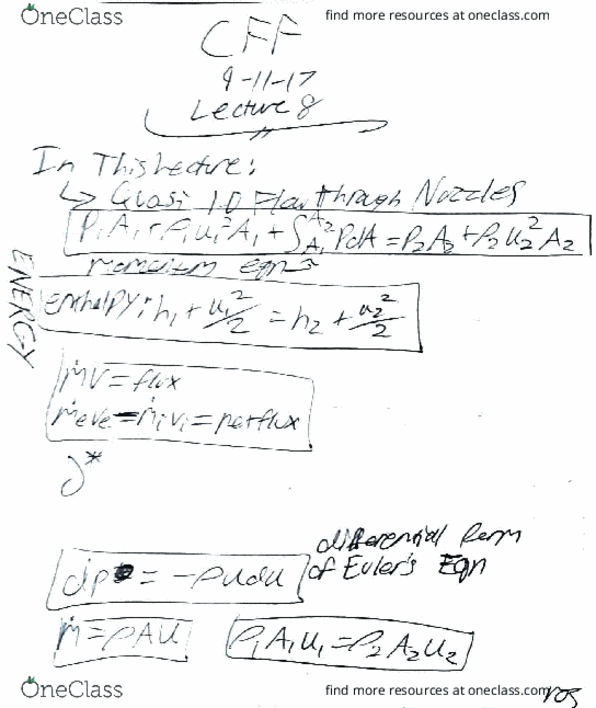 OneClass find more resources at oneclass.com
CFF
9-11-17
Lecture 8
In This Lecture:
↳ Quasi 1D Flow through Nozzles
P₁A₁ + ρ₁u₁²A₁ + ∫_{A₁}^{A₂} PdA = P₂A₂ + ρ₂u₂²A₂
momentum eqn
ENERGY
enthalpy: h₁ + u₁²/2 = h₂ + u₂²/2
ṁv = flux
ṁeve - ṁivi = net flux
differential form
of Euler's Eqn
dp = -ρudu
ṁ = ρAu ρ₁A₁u₁ = ρ₂A₂u₂
OneClass find more resources at oneclass.com